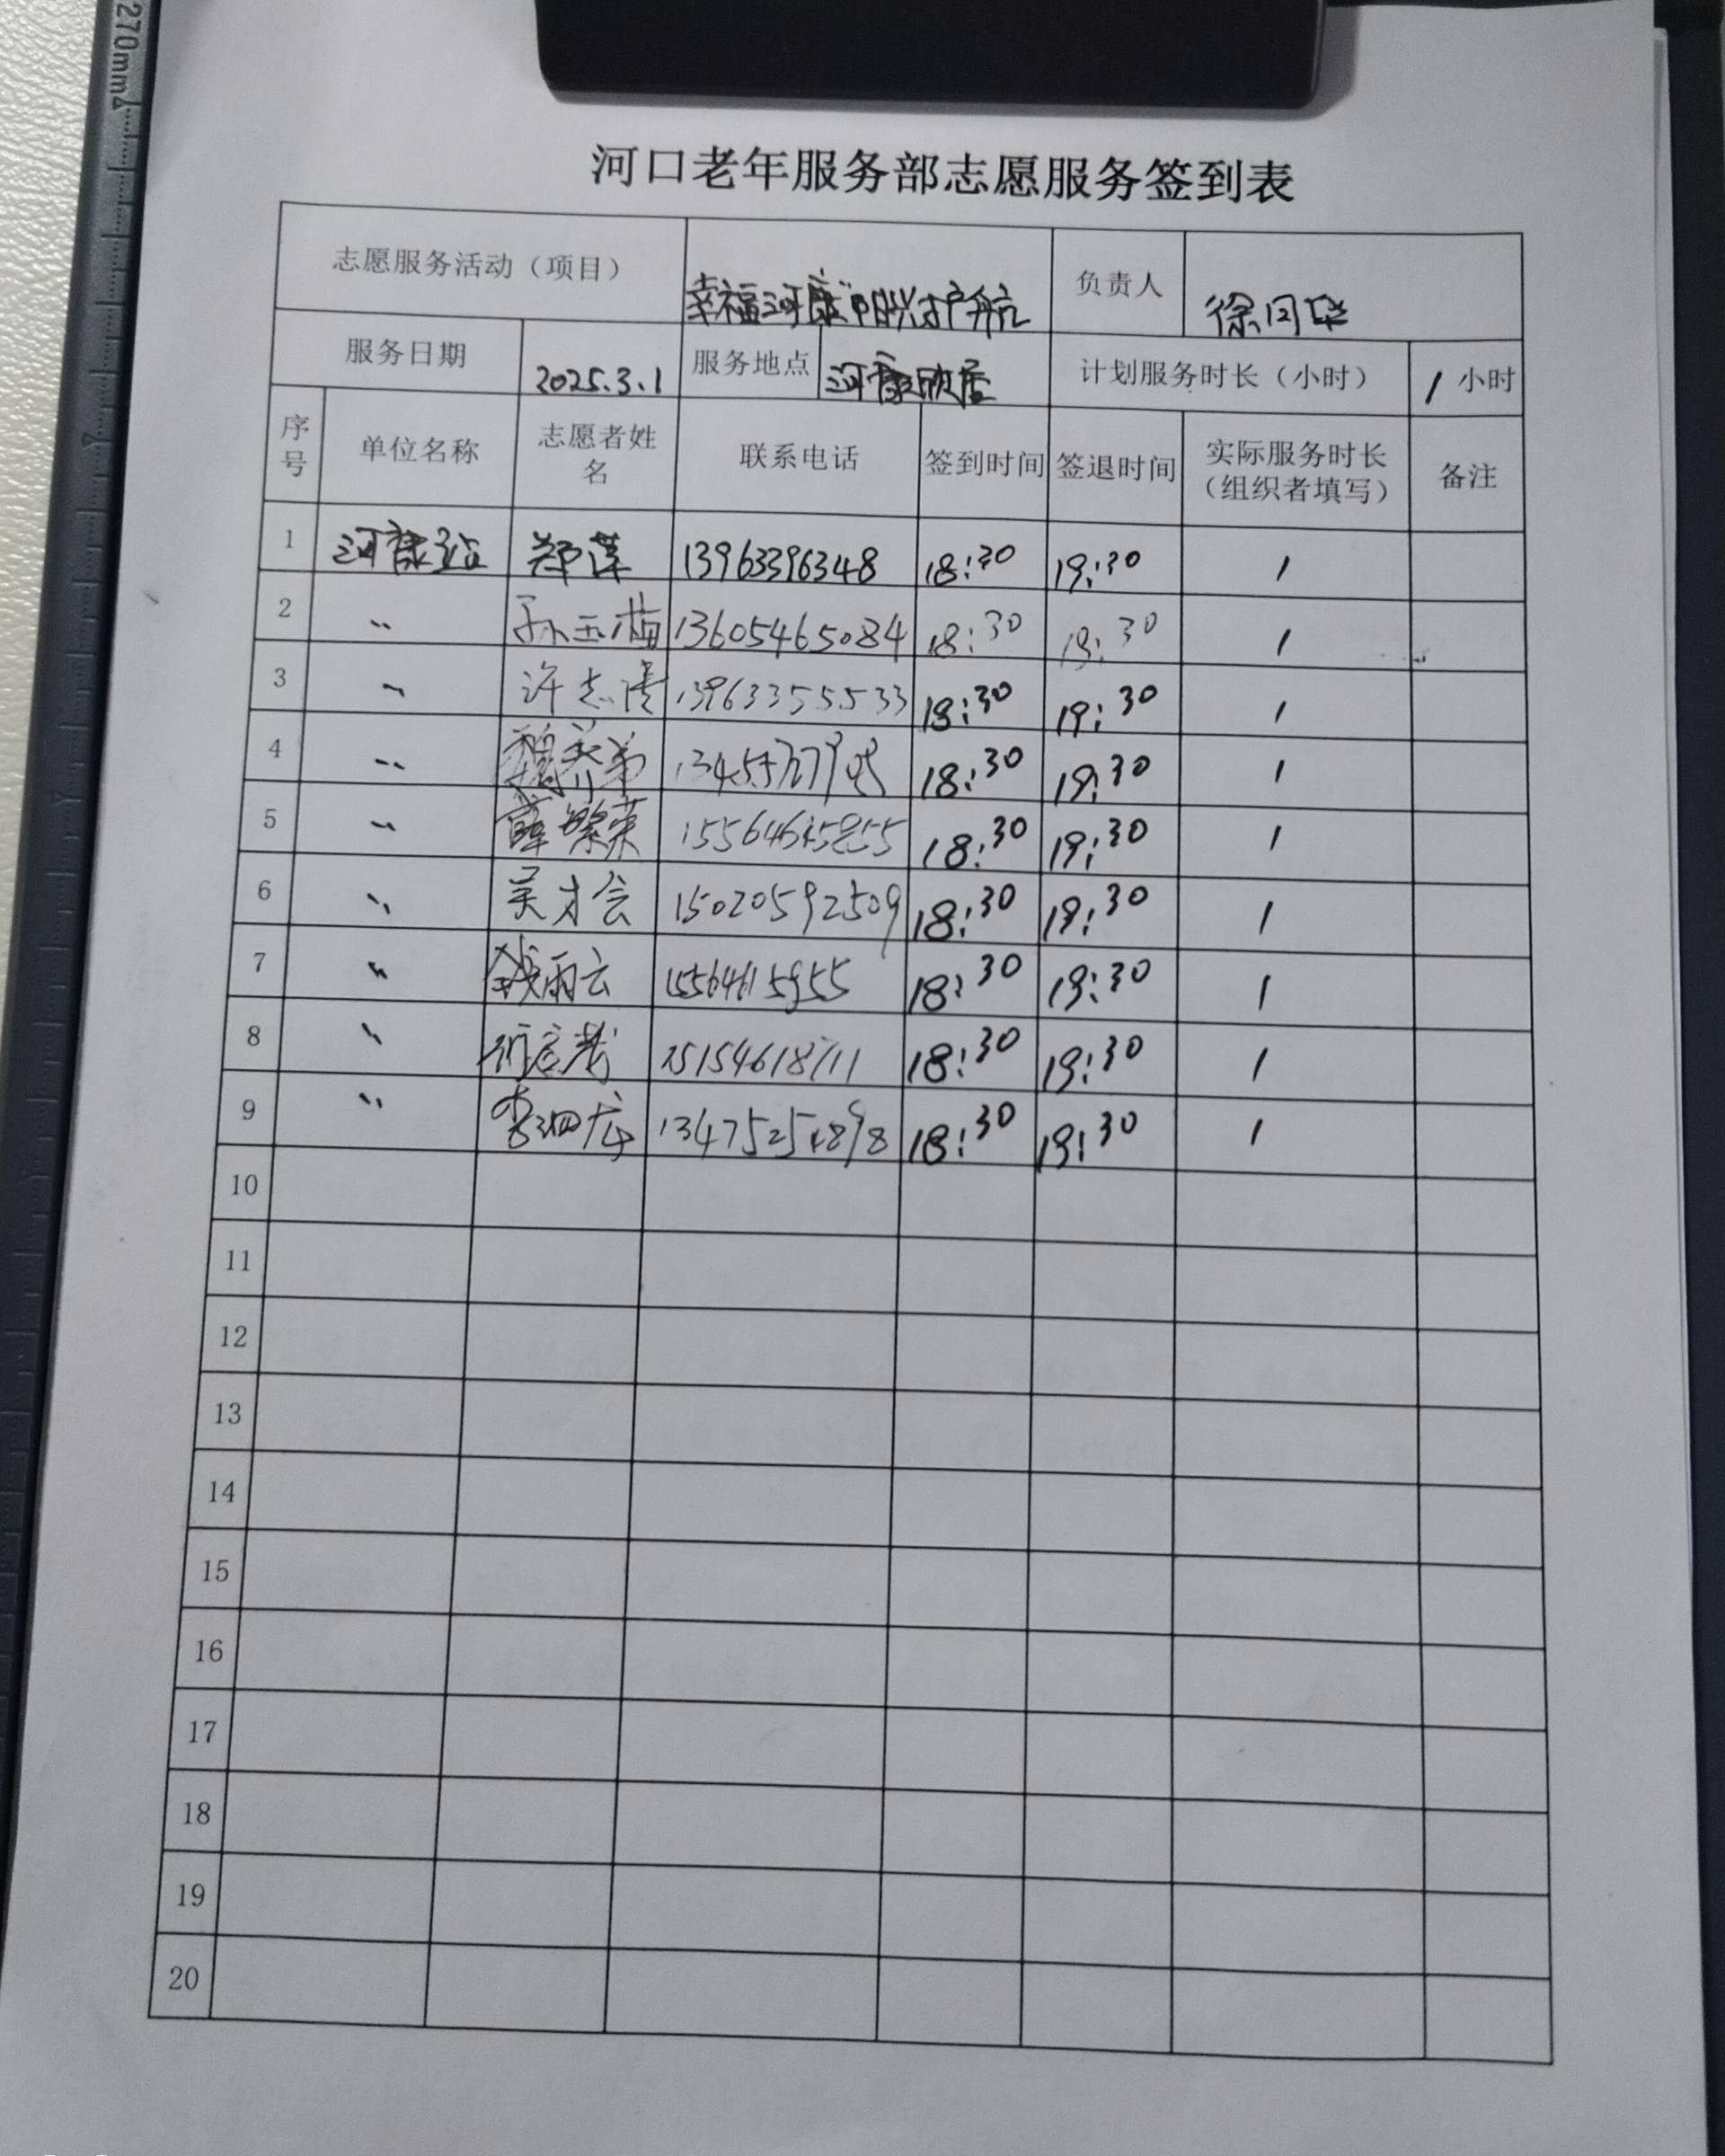 270mm
河口老年服务部志愿服务签到表
志愿服务活动（项目） 幸福河康"阳光护航 负责人 徐同华
服务日期 2025.3.1 服务地点 河康欣居 计划服务时长（小时） 1 小时
序号 单位名称 志愿者姓名 联系电话 签到时间 签退时间 实际服务时长（组织者填写） 备注
1 河康站 郑莲 13963396348 18:30 19:30 1
2 〃 孙玉梅 13605465084 18:30 19:30 1
3 〃 许志清 13963355533 18:30 19:30 1
4 〃 18:30 19:30 1
5 〃 薛繁荣 18:30 19:30 1
6 〃 吴才会 15020592509 18:30 19:30 1
7 〃 钱雨云 18:30 19:30 1
8 〃 15154618711 18:30 19:30 1
9 〃 李泗龙 18:30 19:30 1
10
11
12
13
14
15
16
17
18
19
20